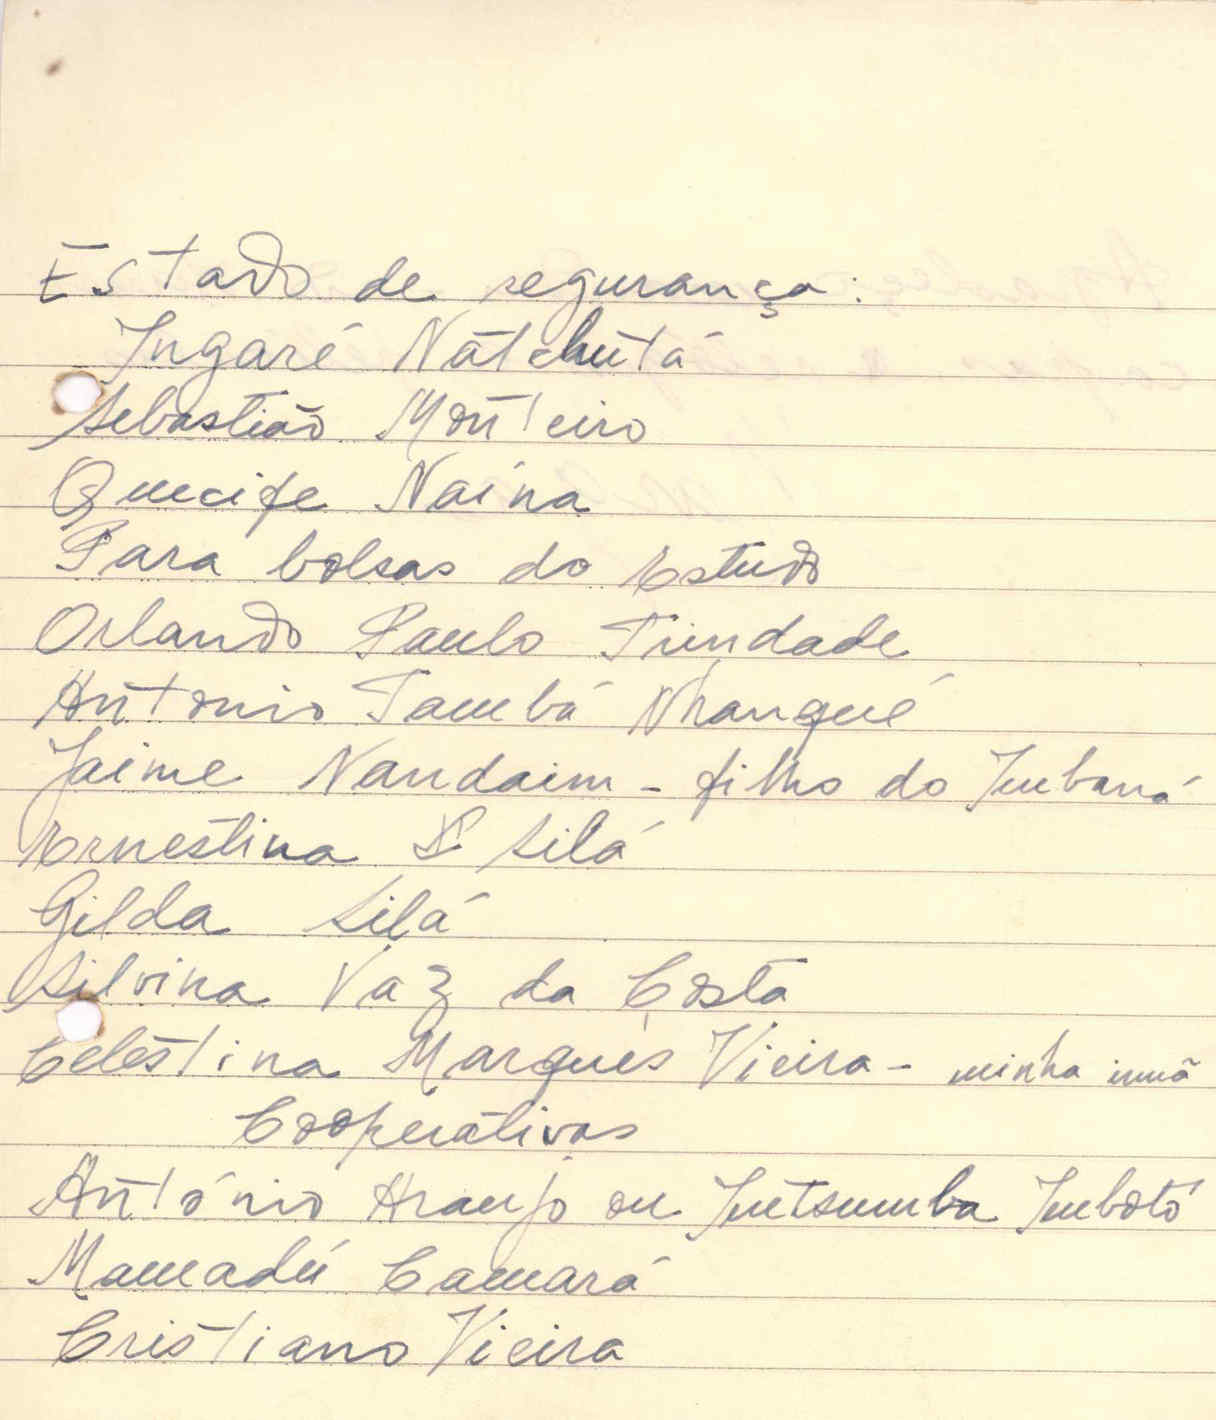 Estado de segurança:
Ingaré Natchutá
Sebastião Monteiro
Quecife Naína
Para bolsas do Estudo
Orlando Paulo Trindade
António Tambá Nhanqué
Jaime Nandaim - filho do Imbaná
Ernestina Silá
Gilda Silá
Silvina Vaz da Costa
Celestina Marques Vieira - minha irmã
Cooperativas
António Araujo ou Intsumba Imbotó
Mamadú Camará
Cristiano Vieira